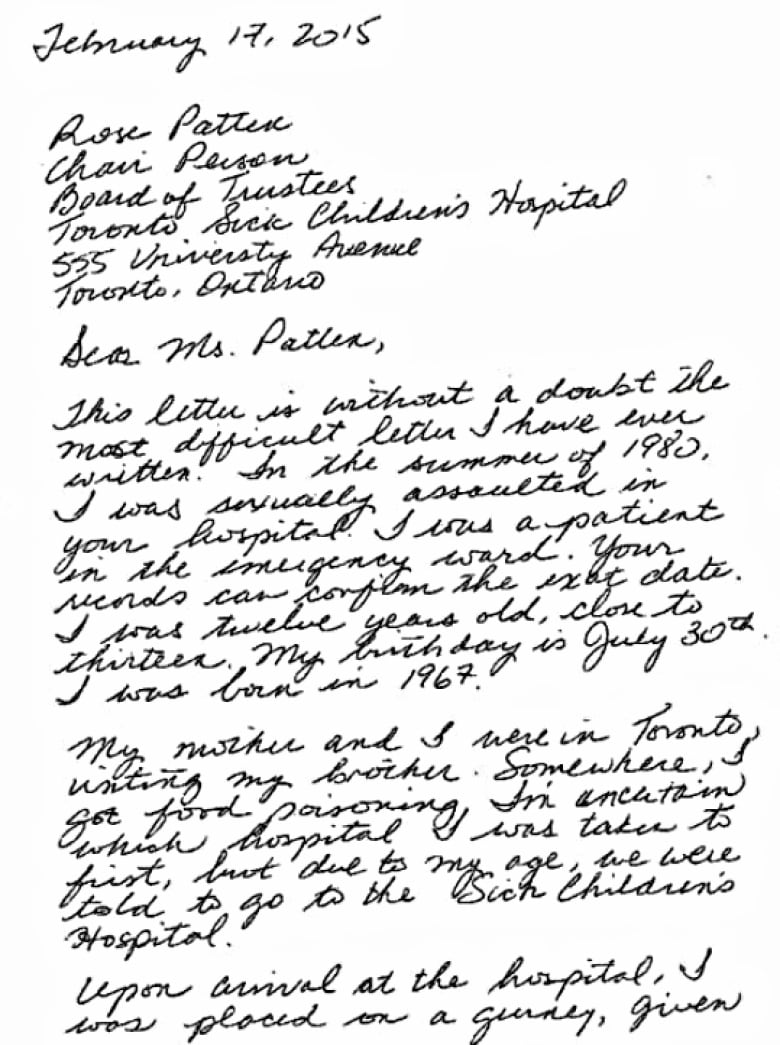 February 17, 2015
Rose Patten
Chair Person
Board of Trustees
Toronto Sick Children's Hospital
555 Universty Avenue
Toronto, Ontario
Dear Ms. Patten,
This letter is without a doubt the
most difficult letter I have ever
written. In the summer of 1980,
I was sexually assaulted in
your hospital. I was a patient
in the emergency ward. Your
records can confirm the exat date.
I was twelve years old, close to
thirteen. My birthday is July 30th.
I was born in 1967.
My mother and I were in Toronto,
visiting my brother. Somewhere, I
got food poisoning. I'm uncertain
which hospital I was taken to
first, but due to my age, we were
told to go to the Sick Children's
Hospital.
Upon arrival at the hospital, I
was placed on a gurney, given